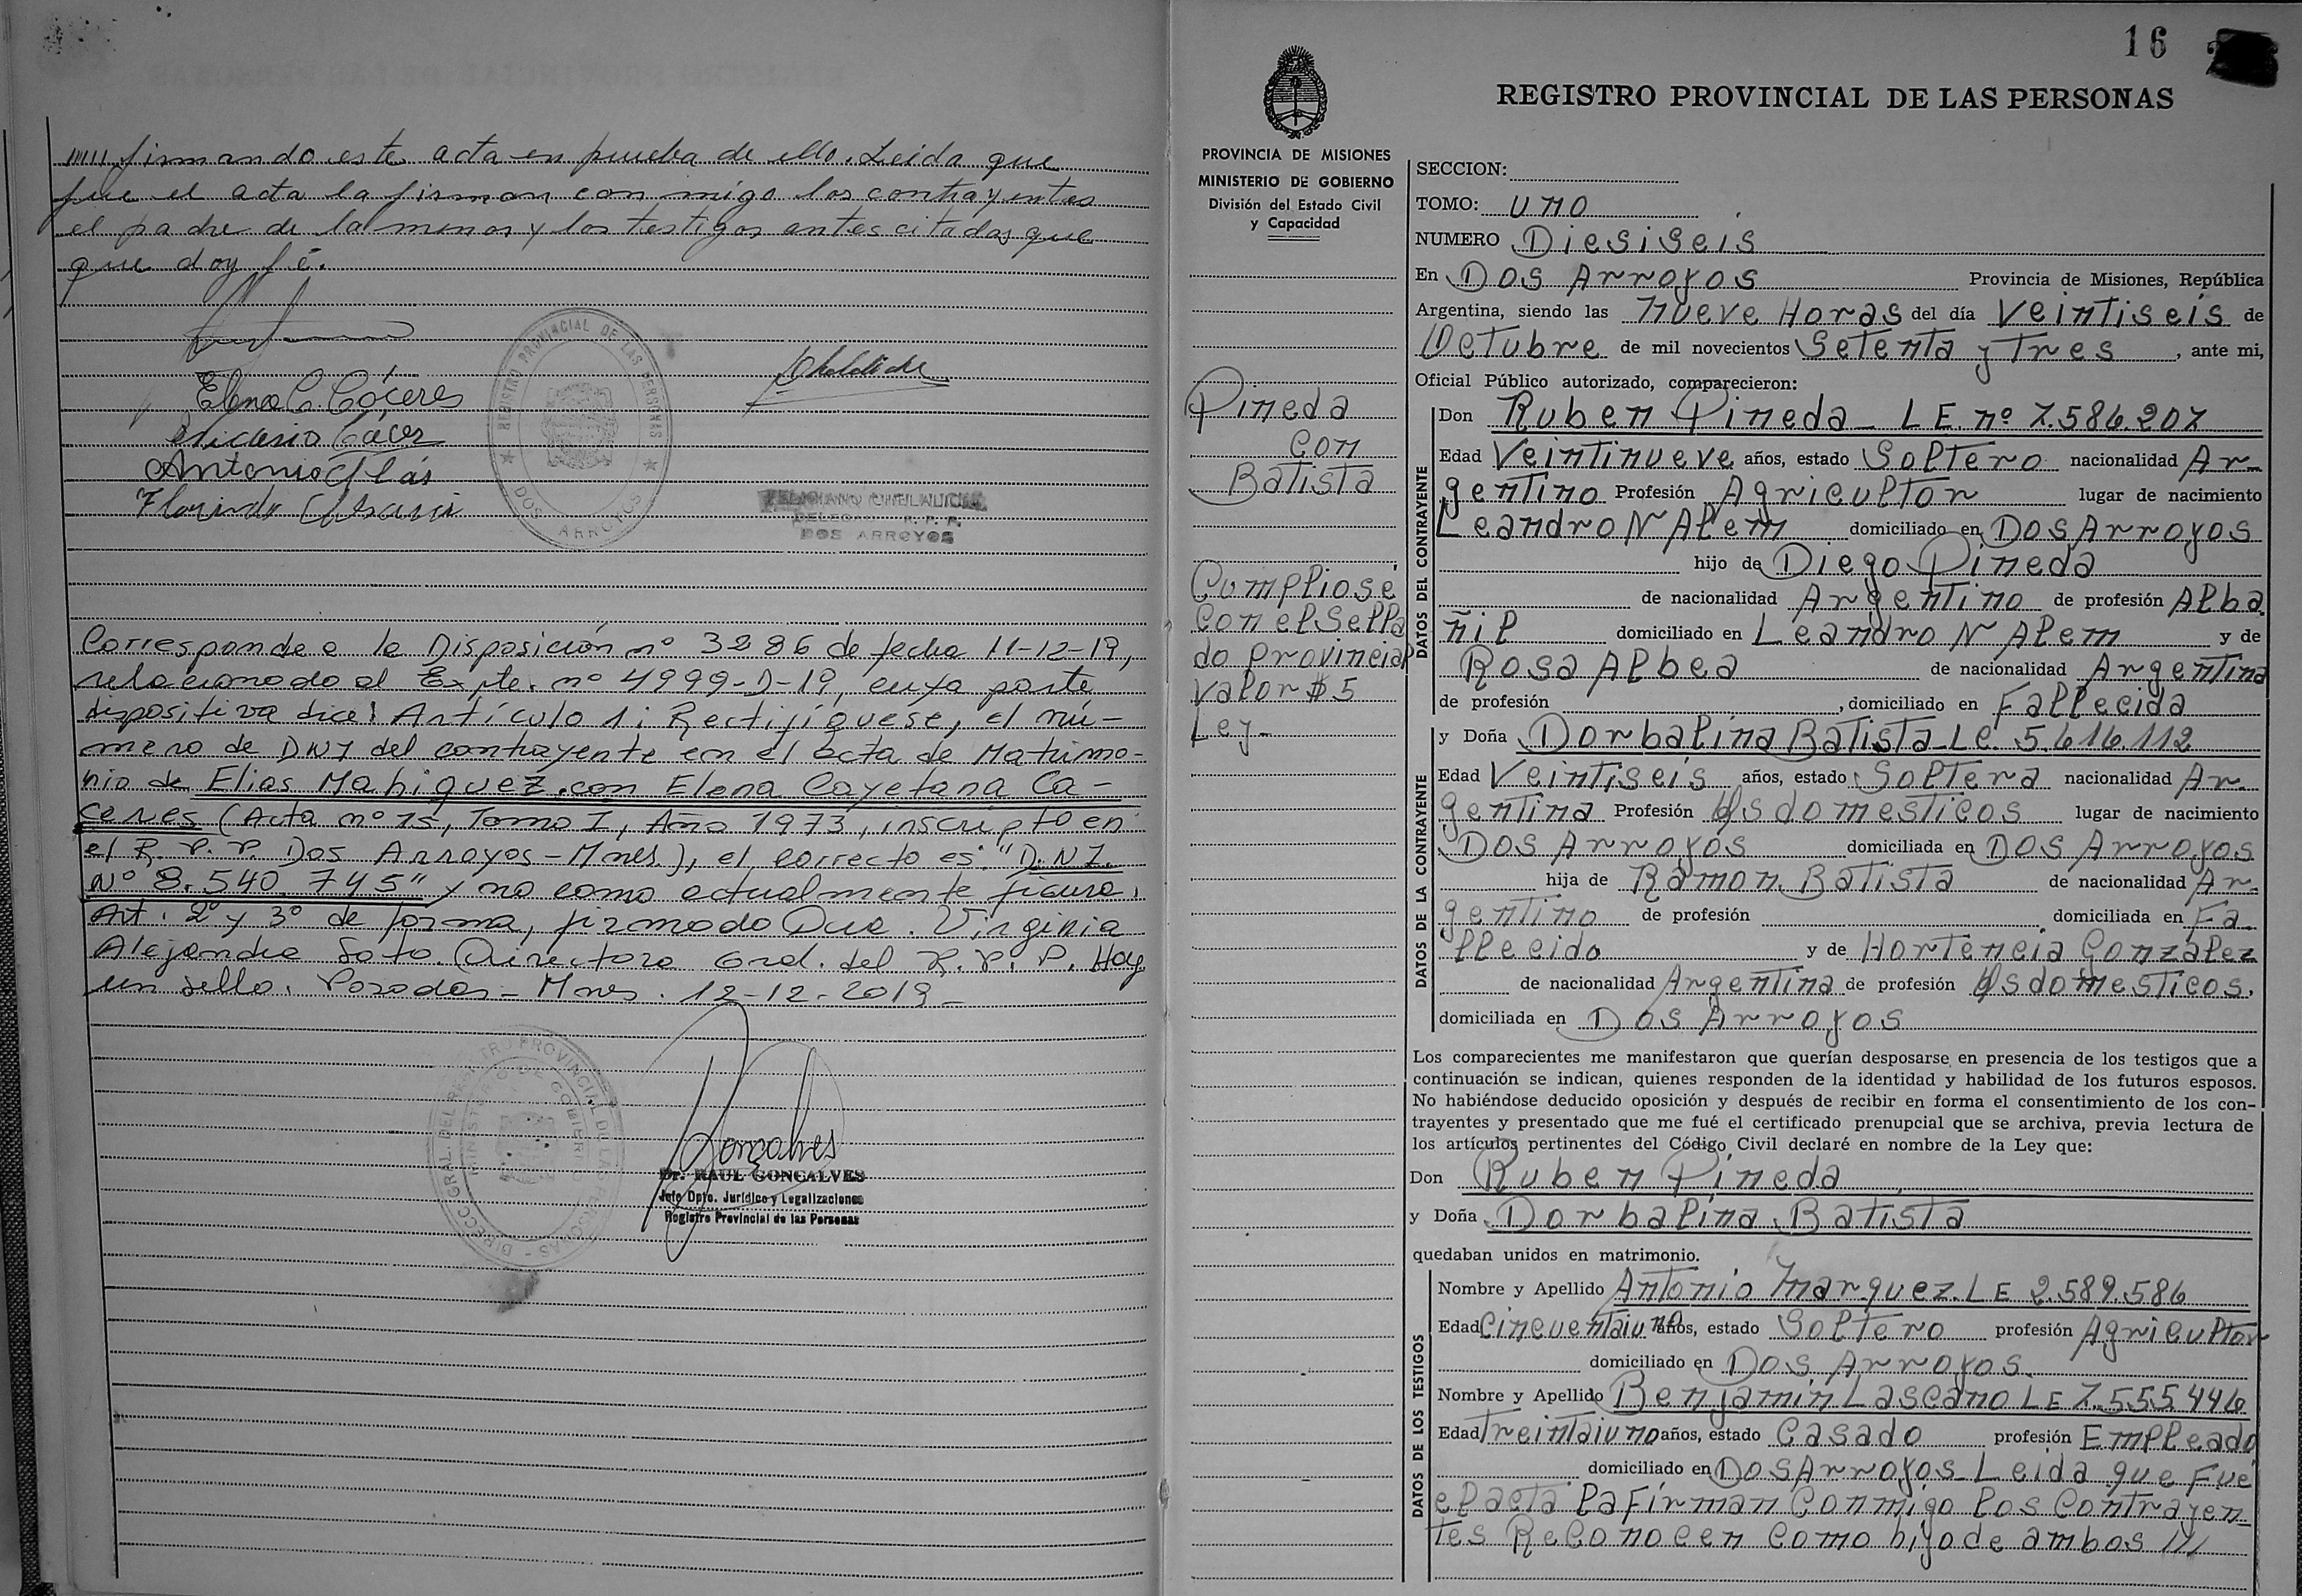 ///// firmando este acta en prueba de ello. Leida que
fue el acta la firman con migo los contrayentes
el padre de la menor y los testigos antes citados que
que doy fé.
Elena C. Cáceres
Antonio Glás
Florindo
REGISTRO PROVINCIAL DE LAS PERSONAS
DOS ARROYOS
DOS ARROYOS
Corresponde a la Disposición nº 3286 de fecha 11-12-19,
relacionado al Expte. nº 4999-D-19, cuya parte
dispositiva dice: Artículo 1: Rectifíquese, el nú-
mero de DNI del contrayente en el acta de Matrimo-
nio de Elias Mahiquez con Elena Cayetana Ca-
ceres (Acta nº 15, Tomo I, Año 1973, inscripto en
el R. P. P. Dos Arroyos - Mnes.), el correcto es: "D.N.I.
Nº 8.540.745" y no como actualmente figura.
Art. 2º y 3º de forma, firmado Dra. Virginia
Alejandra Soto. Directora Gral. del R. P. P. Hay
un sello. Posadas - Mnes. 12-12-2019 -
DIRECC. GRAL. DEL REGISTRO PROVINCIAL DE LAS PERSONAS
MINISTERIO DE GOBIERNO
Goncalves
Dr. RAUL GONCALVES
Jefe Dpto. Jurídico y Legalizaciones
Registro Provincial de las Personas
16
REGISTRO PROVINCIAL DE LAS PERSONAS
PROVINCIA DE MISIONES
MINISTERIO DE GOBIERNO
División del Estado Civil
y Capacidad
Pineda
con
Batista
Cumpliose
Con el Sella
do provincial
valor $ 5
Ley -
SECCION:
TOMO: uno
NUMERO Diesiseis
En Dos Arroyos Provincia de Misiones, República
Argentina, siendo las nueve Horas del día Veintiseis de
Octubre de mil novecientos Setenta y Tres, ante mi,
Oficial Público autorizado, comparecieron:
DATOS DEL CONTRAYENTE
Don Ruben Pineda - L E nº 7.586.207
Edad Veintinueve años, estado Soltero nacionalidad Ar-
gentino Profesión Agricultor lugar de nacimiento
Leandro N Alem domiciliado en Dos Arroyos
hijo de Diego Pineda
de nacionalidad Argentino de profesión Alba
ñil domiciliado en Leandro N Alem y de
Rosa Albea de nacionalidad Argentina
de profesión , domiciliado en Fallecida
DATOS DE LA CONTRAYENTE
y Doña Dorbalina Batista - Lc. 5.616.112
Edad Veintiseis años, estado Soltera nacionalidad Ar-
gentina Profesión Qs domesticos lugar de nacimiento
Dos Arroyos domiciliada en Dos Arroyos
hija de Ramon Batista de nacionalidad Ar-
gentino de profesión domiciliada en Fa-
llecido y de Hortencia Gonzalez
de nacionalidad Argentina de profesión Qs domesticos.
domiciliada en Dos Arroyos
Los comparecientes me manifestaron que querían desposarse en presencia de los testigos que a
continuación se indican, quienes responden de la identidad y habilidad de los futuros esposos.
No habiéndose deducido oposición y después de recibir en forma el consentimiento de los con-
trayentes y presentado que me fué el certificado prenupcial que se archiva, previa lectura de
los artículos pertinentes del Código Civil declaré en nombre de la Ley que:
Don Ruben Pineda
y Doña Dorbalina Batista
quedaban unidos en matrimonio.
DATOS DE LOS TESTIGOS
Nombre y Apellido Antonio Marquez. L E 2.589.586
Edad Cincuentaiuno años, estado Soltero profesión Agricultor
domiciliado en Dos Arroyos.
Nombre y Apellido Benjamin Lascano L E 7.555.446
Edad Treintaiuno años, estado Casado profesión Empleado
domiciliado en Dos Arroyos - Leida que Fue
el acta la Firman Conmigo los Contrayen-
tes Reconocen como hijo de ambos ///